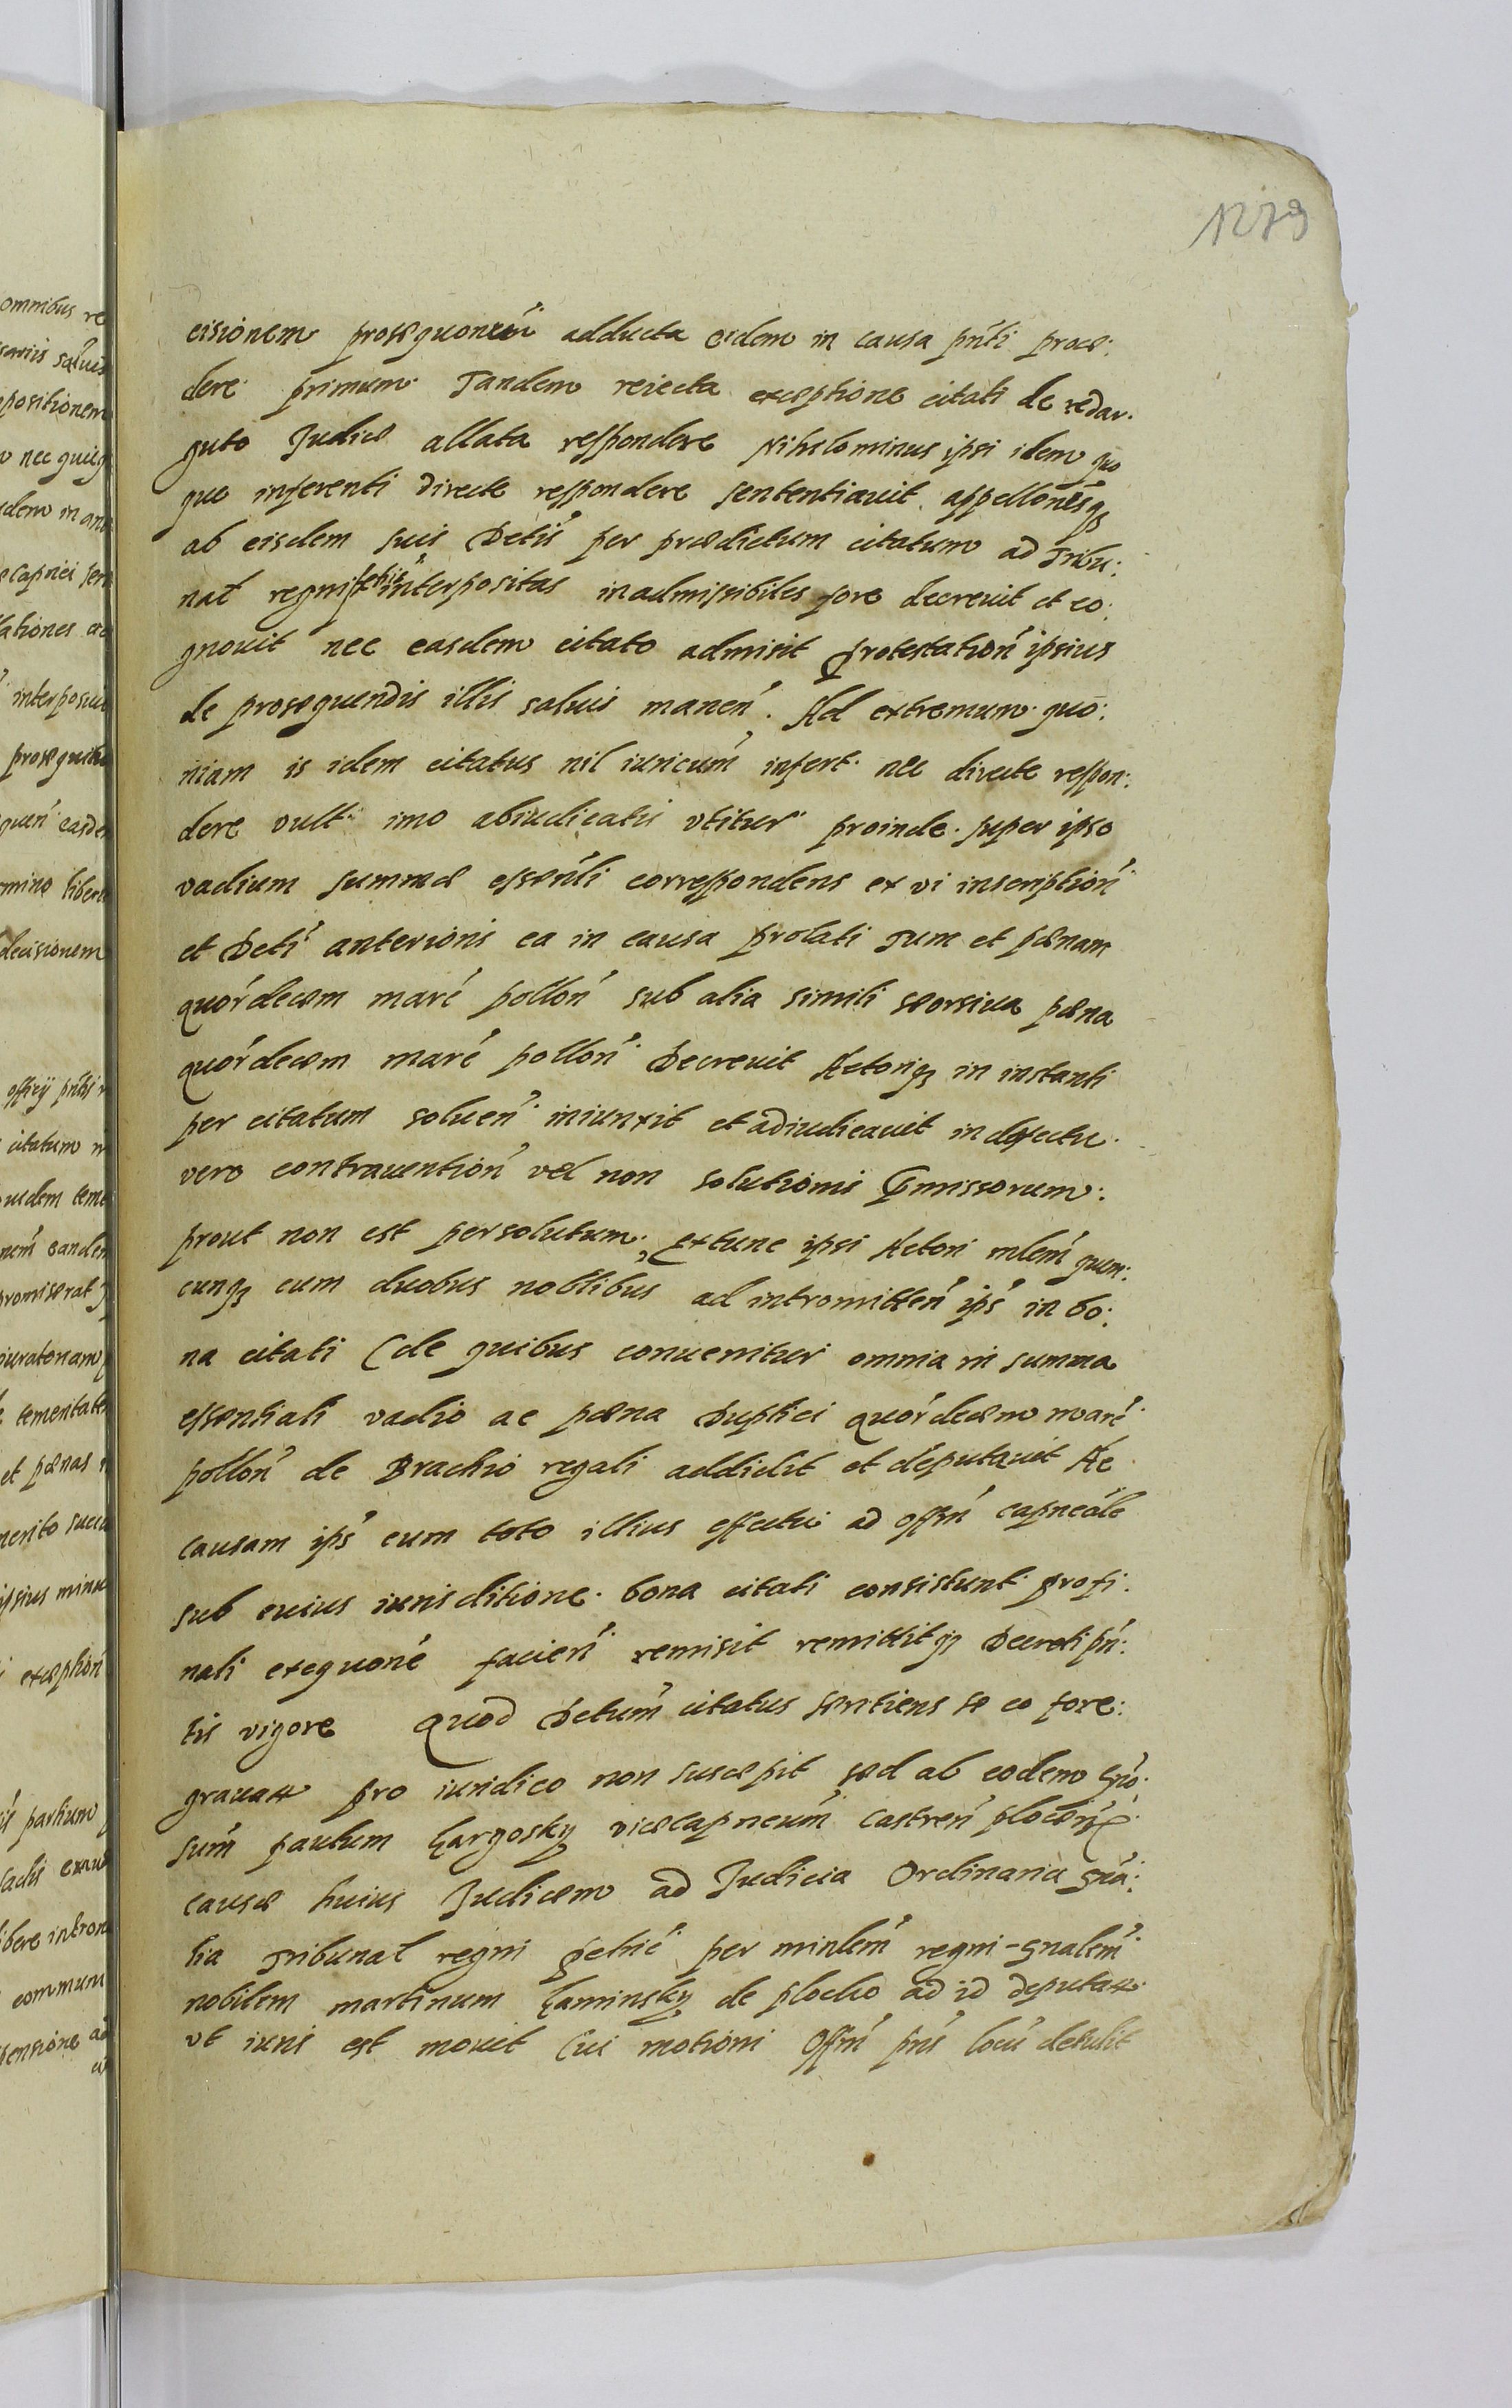 1279
cisionem prosequonem adducta eidem in causa pnti proce:
dere primum Tandem reiecta exceptione citati de redar:
guto Judice allata respondere Nihilominus ipsi idem quo
que inferenti directe respondere sententiauit, appellonesq3
ab eisdem suis Detis per praedictum citatum ad Tribu:
nal regni petric interpositas inadmissibiles fore decreuit et co:
gnouit nec easdem citato admisit protestation ipsius
de prosequendis illis saluis manen. Ad extremum quo:
niam is idem citatus nil iuricum infert nec directe respon:
dere vult imo abiudicatis vtitur proinde super ipso
vadium summae essentli correspondens ex vi inscription
et Deti anterioris ea in causa prolati Tum et paenam
quordecem marc pollon sub alia simili seorsiua paena
quordecem marc pollon Decreuit Actoriq3 in instanti
per citatum soluen iniunxit et adiudicauit in defectu
vero contrauention vel non solutionis Pmissorum:
prout non est persolutum, extunc ipsi Actori mlem quem:
cunq3 cum duobus nobilibus ad intromitten ips in bo:
na citati (de quibus conuenitur omnia in summa
essentiali vadio ac paena Duplici quordecem marc
pollon de Brachio regali addidit et deputauit Ac
causam ips cum toto illius effectu ad offm capneale
sub cuius iurisditione bona citati consistunt profi:
nali exequone facien remisit remittitq3 Decreti pn:
tis vigore Quod Detum citatus sentiens se eo fore:
grauatt pro iuridico non suscepit sed ab eodem Gno:
sum paulum Gargosky vicecapneum castren plocen
causae huius Judicem ad Judicia Ordinaria gna:
lia Tribunal regni petric per minlem regni gnalem
nobilem martinum Kaminsky de plocko ad id deputatt
vt iuris est mouit Cui motioni Offm pns locu detulit